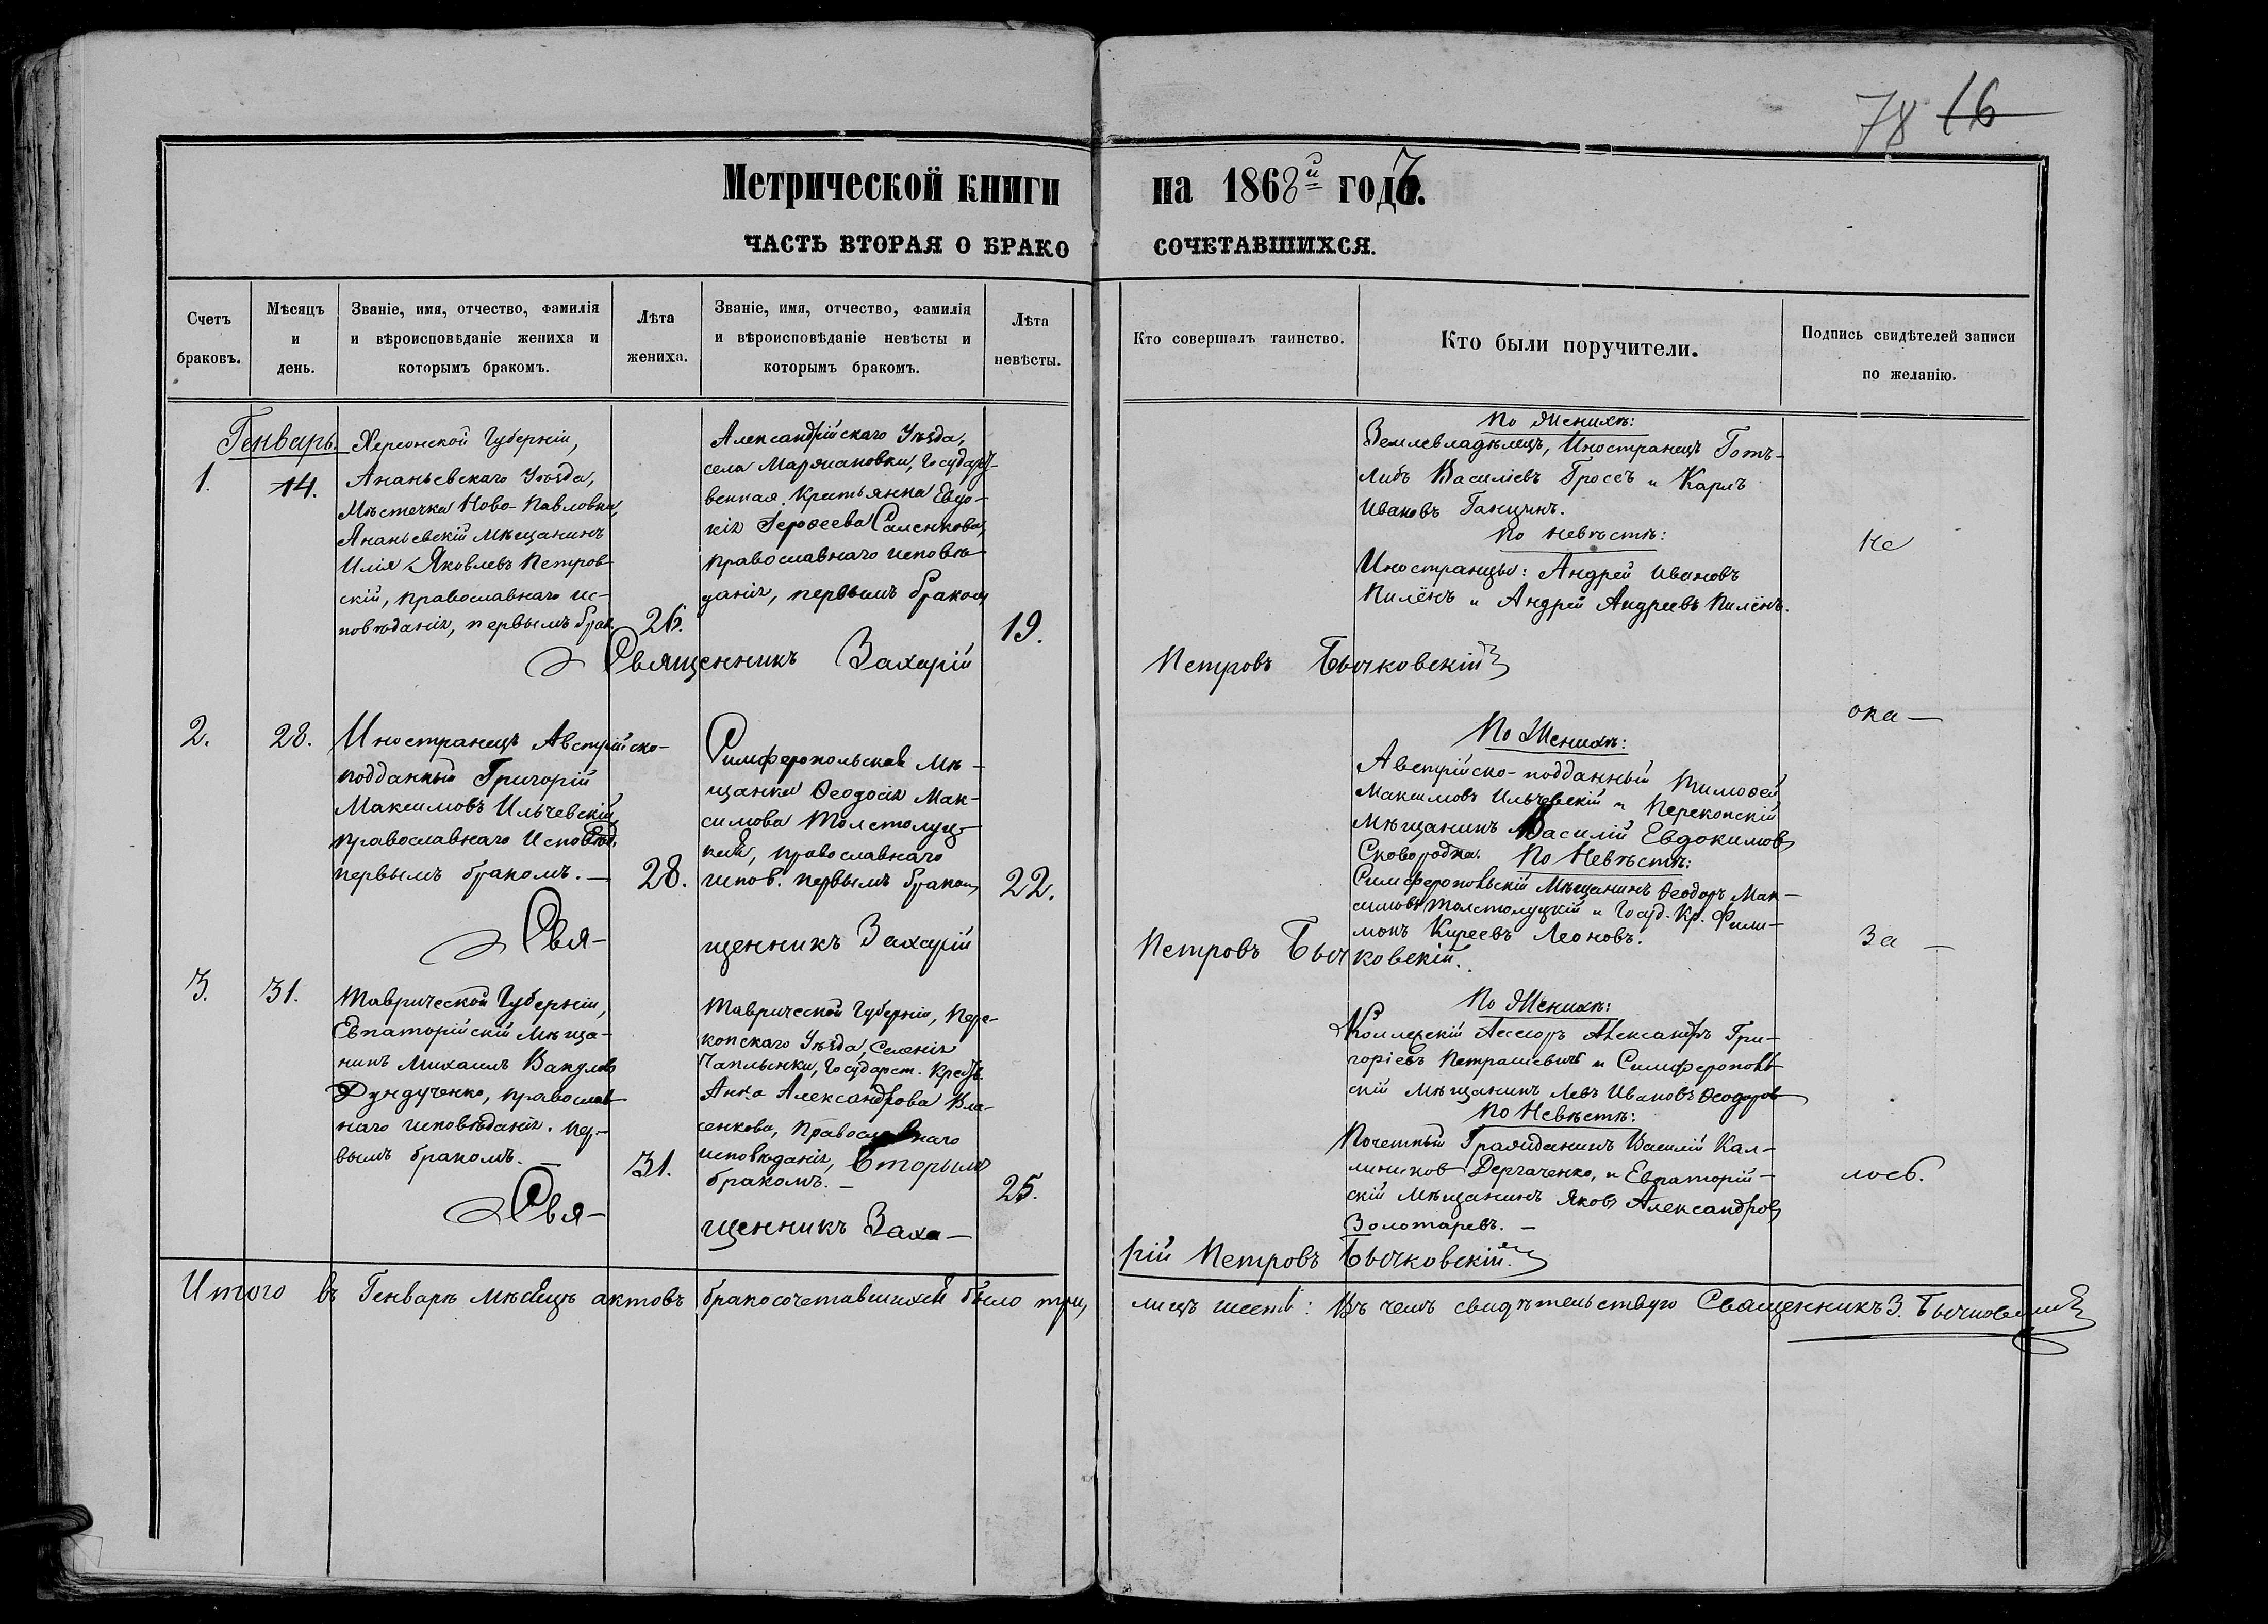 78 16
Метрической книги на 1868й годъ.
ЧАСТЬ ВТОРАЯ О БРАКОСОЧЕТАВШИХСЯ.
Счетъ браковъ.
Мѣсяцъ и день.
Званіе, имя, отчество, фамилія и вѣроисповѣданіе жениха и которымъ бракомъ.
Лѣта жениха.
Званіе, имя, отчество, фамилія и вѣроисповѣданіе невѣсты и которымъ бракомъ.
Лѣта невѣсты.
Кто совершалъ таинство.
Кто были поручители.
Подпись свидѣтелей записи по желанію.
Генварь.
1.
14.
Херсонской Губерніи,
Ананьевскаго Уѣзда,
Мѣстечка Ново-Павловки,
Ананьевскій мѣщанинъ
Илія Яковлевъ Петров-
скій, православнаго ис-
повѣданія, первымъ брак.
26.
Александрійскаго Уѣзда,
села Марьяновки, Государст-
венная Крестьянка Евдо-
кія Герофеева Саленкова,
православнаго исповѣ-
данія, первымъ бракомъ
19.
По Женихѣ:
Землевладѣлецъ, Иностранецъ Готъ-
либъ Василіевъ Гроссъ и Карлъ
Ивановъ Ганцинъ.
По невѣстѣ:
Иностранцы: Андрей Ивановъ
Пилёнъ и Андрей Андреевъ Пилёнъ.
Не
Священникъ Захарій Петровъ Бычковскій
2.
28.
Иностранецъ Австрійско-
подданный Григорій
Максимовъ Ильчевскій,
православнаго Исповѣд.
первымъ бракомъ. —
28.
Симферопольская Мѣ-
щанка Ѳеодосія Мак-
симова Толстолуц-
кая, православнаго
испов. первымъ бракомъ
22.
ока —
По Женихѣ:
Австрійско-подданный Тимоѳей
Максимовъ Ильчевскій и Перекопскій
Мѣщанинъ Василій Евдокимовъ
Сковородка. По Невѣстѣ:
Симферопольскій Мѣщанинъ Ѳеодоръ Мак-
симовъ Толстолуцкій и Госуд. Кр. Фили-
монъ Киреевъ Леоновъ.
За —
Священникъ Захарій Петровъ Бычковскій.
3.
31.
Таврической Губерніи,
Евпаторійскій Мѣща-
нинъ Михаилъ Вакуловъ
Дундученко, православ-
наго исповѣданія. пер-
вымъ бракомъ. —
31.
Таврической Губерніи, Пере-
копскаго Уѣзда, Селенія
Чаплынки, Государст. Крест.
Анна Александрова Вла-
сенкова, Православнаго
исповѣданія, Вторымъ
бракомъ. —
25.
По Женихѣ:
Коллежскій Асессоръ Александръ Гри-
горіевъ Петрашевичъ и Симферополь-
скій Мѣщанинъ Левъ Ивановъ Ѳеодоровъ
По Невѣстѣ:
Почетный Гражданинъ Василій Кал-
линиковъ Дергаченко, и Евпаторій-
скій Мѣщанинъ Яковъ Александровъ
Золотаревъ. —
лось.
Священникъ Захарій Петровъ Бычковскій.
Итого въ Генварѣ мѣсяцѣ актовъ бракосочетавшихся было три, лицъ шесть: Въ чемъ свидѣтельствую Священникъ З. Бычковскій